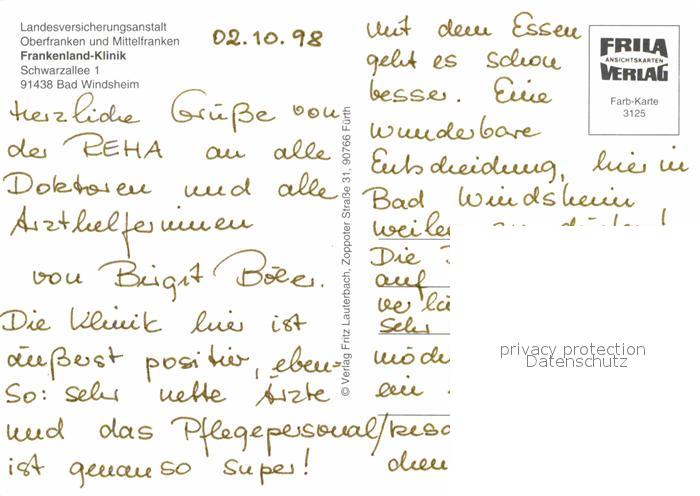 Landesversicherungsanstalt
Oberfranken und Mittelfranken
Frankenland-Klinik
Schwarzallee 1
91438 Bad Windsheim
02.10.98
Herzliche Grüße von
der REHA an alle
Doktoren und alle
Arzthelferinnen
von Birgit
Die Klinik hier ist
äußerst positiv, eben-
so: sehr nette Ärzte
und das Pflegepersonal
ist genauso super!
© Verlag Fritz Lauterbach, Zoppoter Straße 31, 90766 Fürth
Mit dem Essen
geht es schon
besser. Eine
wunderbare
Entscheidung, hier in
Bad Windsheim
weilen zu dürfen!
Die
auf
sehr
ein
FRILA
ANSICHTSKARTEN
VERLAG
Farb-Karte
3125
privacy protection
Datenschutz